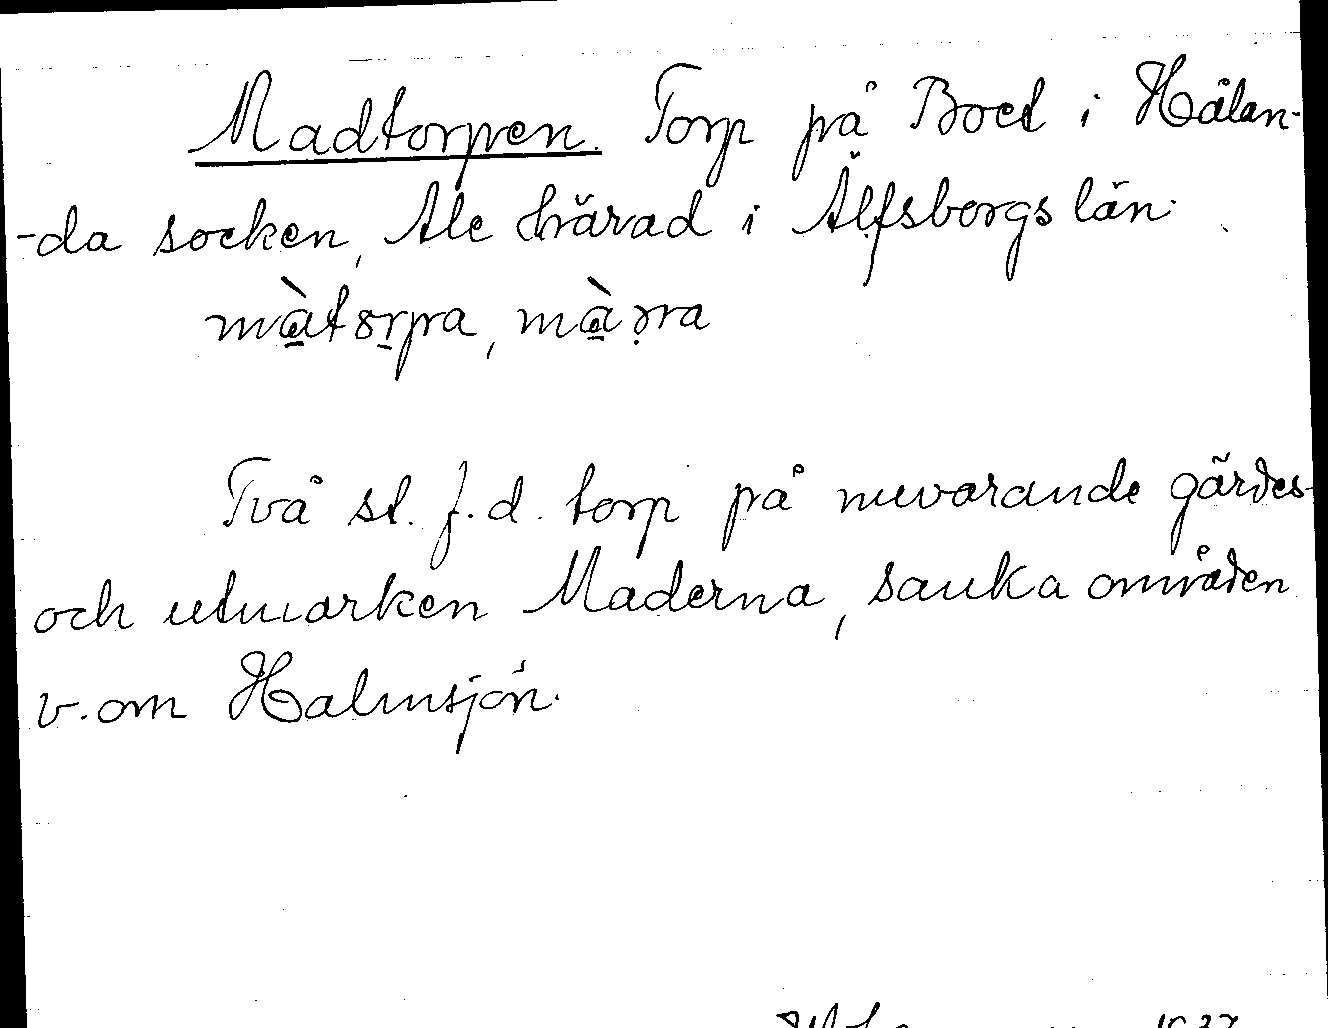 Madtorpen. Torp på Boet i Hålan-
-da socken, Ale härad i Älfsborgs län.
màtorpa, màṇna
Två st. f.d. torp på nuvarande gärdes-
och utmarken Maderna, sanka områden
v. om Halmsjön.